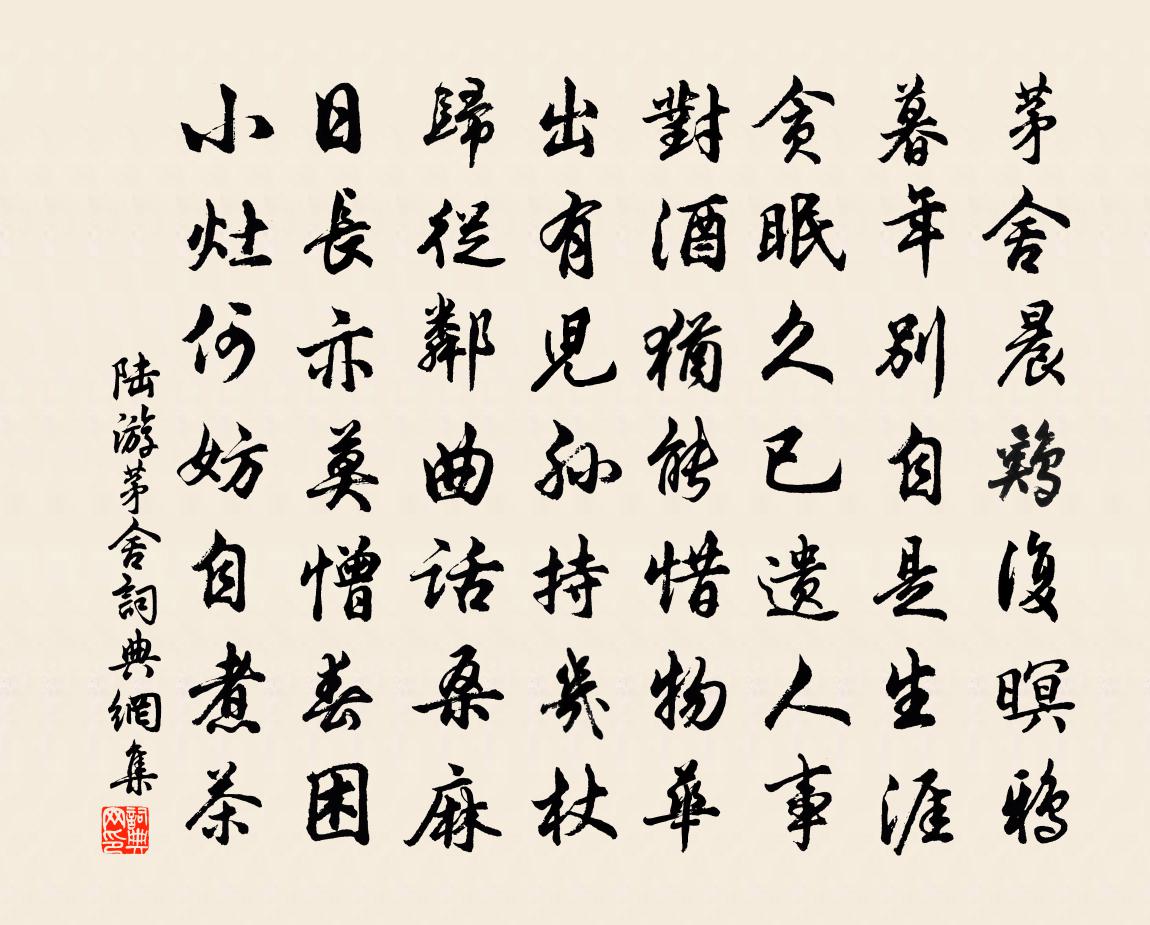 茅舍晨鷄復暝鴉
暮年别自是生涯
贪眠久已遗人事
對酒猶能惜物華
出有児孙持几杖
歸從鄰曲话桑麻
日長亦莫憎春困
小灶何妨自煮茶
陆游茅舍詞典網集
詞典网印